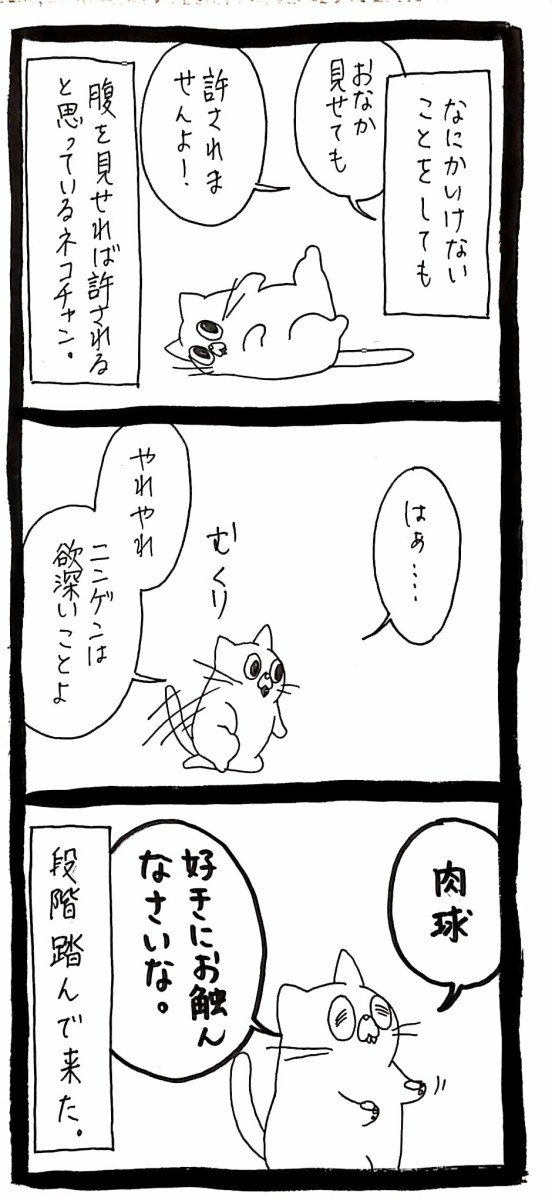 なにかいけない
ことをしても
おなか
見せても
許されま
せんよ!
腹を見せれば許される
と思っているネコチャン。
はぁ……
むくり
やれやれ
ニンゲンは
欲深いことよ
肉球
好きにお触ん
なさいな。
段階踏んで来た。